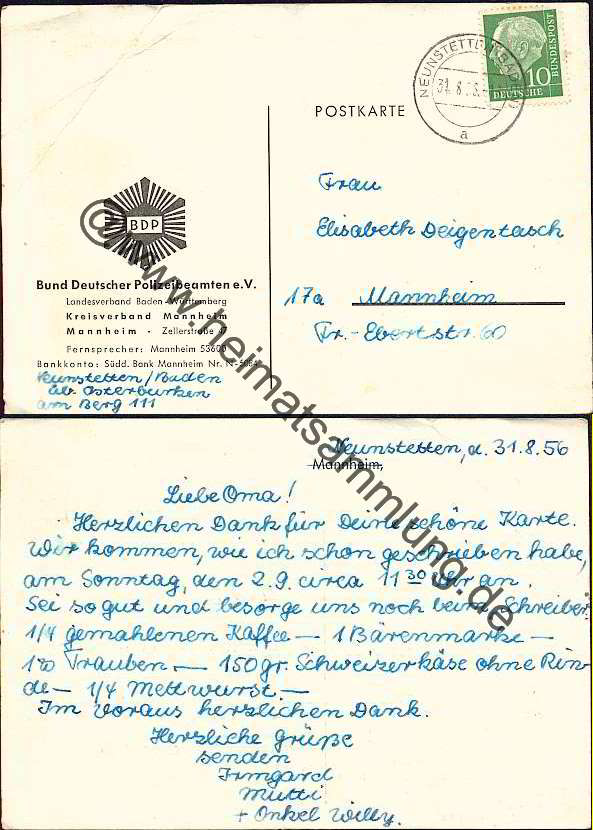 NEUNSTETTEN
31.8.56.
a
10
DEUTSCHE
BUNDESPOST
POSTKARTE
BDP
Bund Deutscher Polizeibeamten e.V.
Landesverband Baden-Württemberg
Kreisverband Mannheim
Mannheim - Zellerstraße
Fernsprecher: Mannheim 53600
Bankkonto: Südd. Bank Mannheim Nr. N-5084
Neunstetten/Baden
üb. Osterburken
am Berg 111
Frau
Elisabeth Deigentasch
17a Mannheim
Fr.-Ebertstr. 60
@ www.heimatsammlung.de
Neunstetten, d. 31.8.56
Mannheim,
Liebe Oma!
Herzlichen Dank für Deine schöne Karte.
Wir kommen, wie ich schon geschrieben habe,
am Sonntag, den 2.9. circa 11 30 Uhr an.
Sei so gut und besorge uns noch beim Schreiber
1/4 gemahlenen Kaffee — 1 Bärenmarke —
Trauben. — 150 gr. Schweizerkäse ohne Rin-
de — 1/4 Mettwurst. —
Im Voraus herzlichen Dank.
Herzliche Grüße
senden
Irmgard
Mutti
+ Onkel Willy.